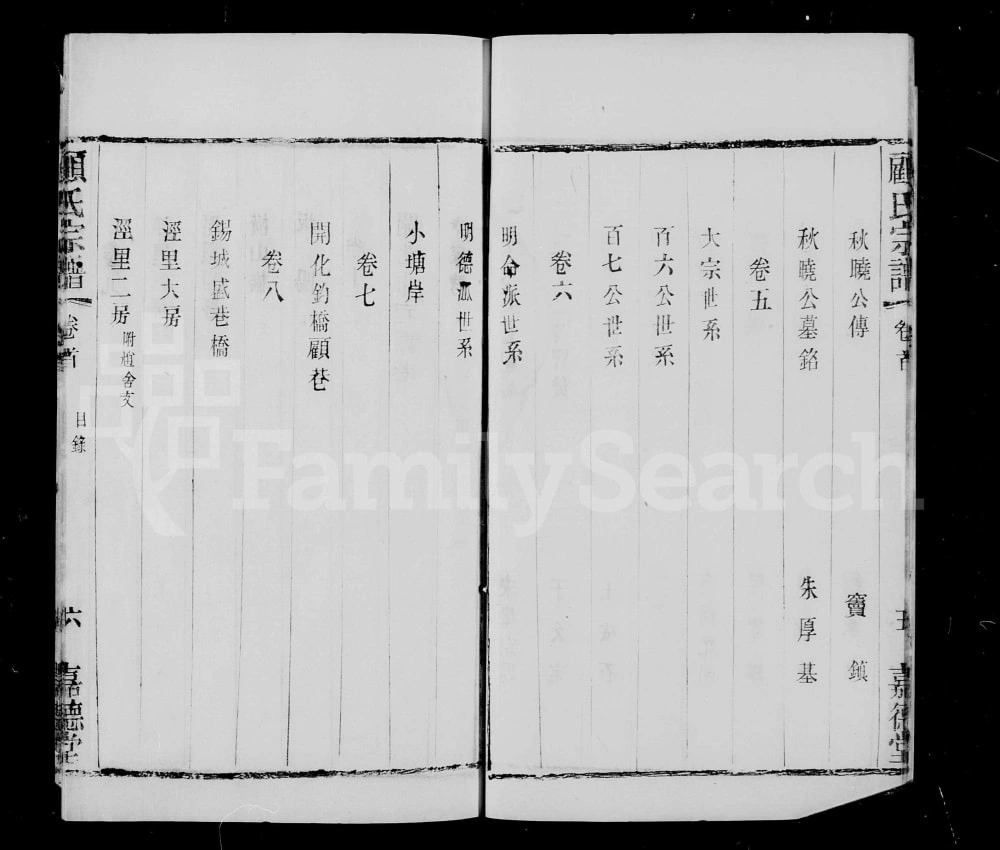 顧氏宗譜 卷首 五 嘉德堂
秋曉公傳 竇鎮
秋曉公墓銘 朱厚基
卷五
大宗世系
百六公世系
百七公世系
卷六
明命派世系
明德派世系
小塘岸
卷七
開化鈞橋顧巷
卷八
錫城盛巷橋
涇里大房
涇里二房 附
顧氏宗譜 卷首 目錄 六 嘉德堂
FamilySearch